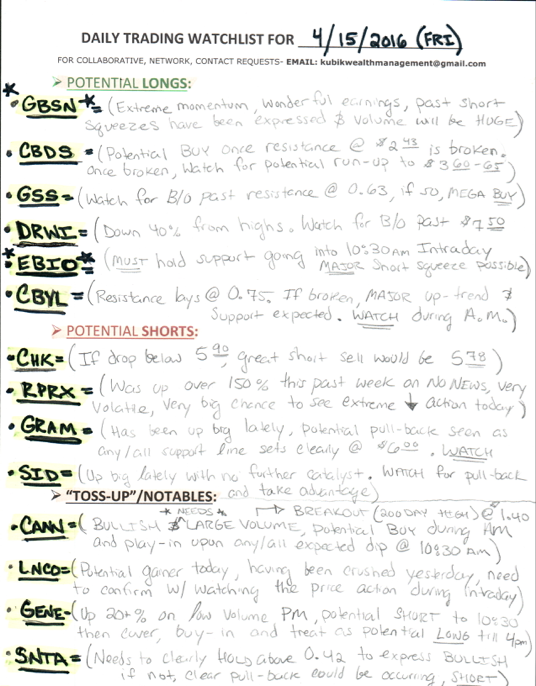 DAILY TRADING WATCHLIST FOR 4/15/2016 (FRI)
FOR COLLABORATIVE, NETWORK, CONTACT REQUESTS- EMAIL: kubikwealthmanagement@gmail.com
➢ POTENTIAL LONGS:
* • GBSN * = (Extreme momentum, wonderful earnings, past short
squeezes have been expressed & volume will be HUGE)
• CBDS = (Potential BUY once resistance @ $2.43 is broken.
once broken, watch for potential run-up to $3.60-65)
• GSS = (Watch for B/O past resistance @ 0.63, if so, MEGA BUY)
• DRWI = (Down 40% from highs. Watch for B/O past $7.50
* • EBIO * = (MUST hold support going into 10:30AM Intraday
MAJOR short squeeze possible)
• CBYL = (Resistance lays @ 0.75. If broken, MAJOR up-trend &
support expected. WATCH during A.M.)
➢ POTENTIAL SHORTS:
• CHK = (If drop below 5.90, great short sell would be 5.78)
• RPRX = (Was up over 150% this past week on NO NEWS, very
volatile, very big chance to see extreme ↓ action today)
• GRAM = (Has been up big lately, potential pull-back seen as
any/all support line sets clearly @ $6.00. WATCH
• SID = (Up big lately with no further catalyst. WATCH for pull-back
and take advantage)
➢ "TOSS-UP"/NOTABLES:
* NEEDS * → BREAKOUT (200 DAY HIGH) @ 1.40
• CANN = (BULLISH & LARGE VOLUME, potential Buy during AM
and play-in upon any/all expected dip @ 10:30 AM)
• LNCO = (Potential gainer today, having been crushed yesterday, need
to confirm w/ watching the price action during Intraday)
• GENE - (Up 20+% on low volume PM, potential SHORT to 10:30
then cover, buy-in and treat as potential LONG till 4pm)
• SNTA = (Needs to clearly HOLD above 0.42 to express BULLISH
if not, clear pull-back could be occuring, SHORT)